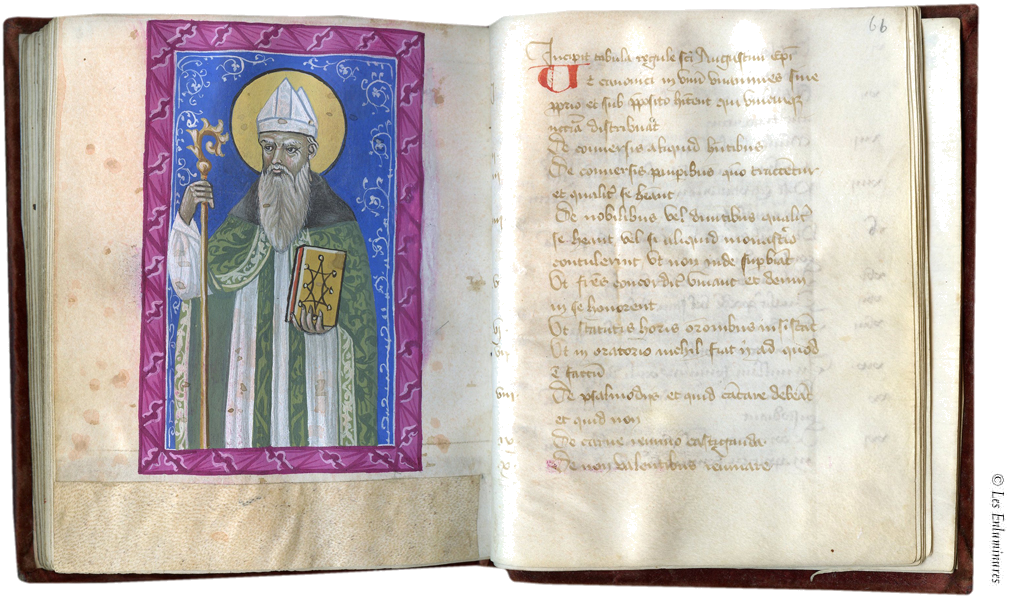 66
Incipit tabula regule sci Augustini epi
Ut canonici in unu unanimes sine
pprio et sub pposito hitent qui unicuiqz
distribuat
De conuersis aliquid hntibus
De conuersis quo tractentur
et qualit se heant
De nobilibus vel qualit
se heant vel si aliquid monastio
contulerint ut non inde supbiat
Ut fres concordit viuant et deum
in se honorent
Ut statutis horis oronibus insistat
Ut in oratorio nichil fiat ad quod
e factu
De psalmodiis et quid catare debeat
et quid non
De carne castiganda
De non valentibus ieiunare
vi
vii
viii
ix
x
© Les Enluminures